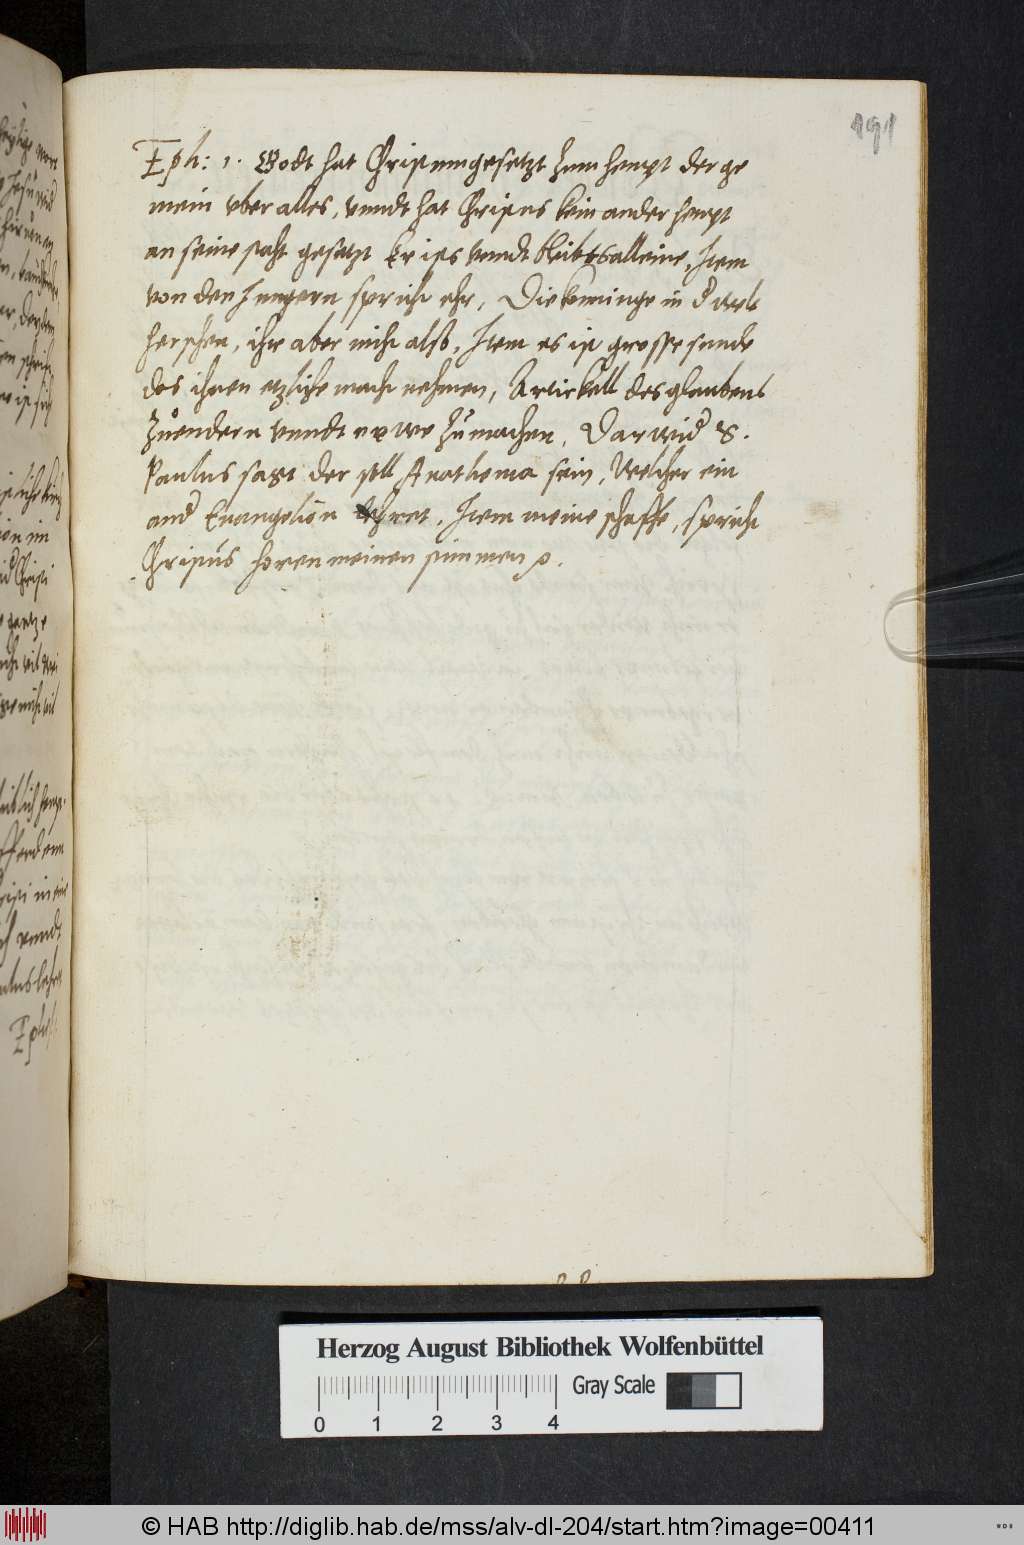 191
Eph: 1. Godt hat Christum gesetzt zum heupt der ge
mein vber alles, vnndt hat Christus kein ander heupt
an seine stadt gesetzt Er ists vnndt bleibts alleine, Item
von den Jungern spricht ehr, Die konninge in d' welt
herschen, ihr aber nicht also, Item es ist grosse sunde
das ihnen etzliche macht nehmen, Artickell des glaubens
zu endern vnndt newe zu machen, Darwid' S.
Paulus sagt der soll Anathema sein, Welcher ein
and' Euangelion lehret, Item meine schaffe, spricht
Christus horen meinen stimmen
Herzog August Bibliothek Wolfenbüttel
Gray Scale
0 1 2 3 4
© HAB http://diglib.hab.de/mss/alv-dl-204/start.htm?image=00411